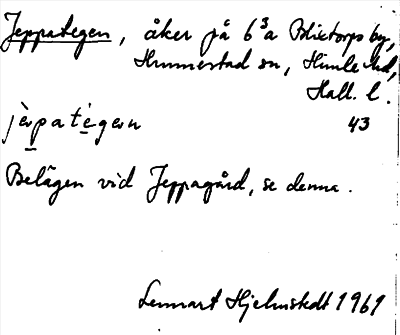 Jeppategen, åker på 6³a Blixtorps by,
Hunnestad sn, Himle hd,
Hall. l.
jèpatégen 43
Belägen vid Jeppagård, se denna.
Lennart Hjelmstedt 1969